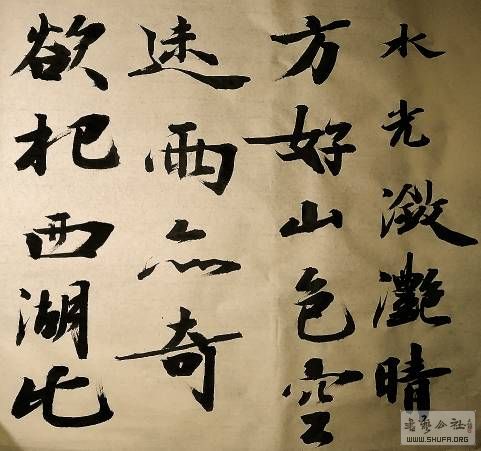 水光潋灧晴
方好山色空
迷雨亦奇
欲把西湖比
書藝公社
WWW.SHUFA.ORG